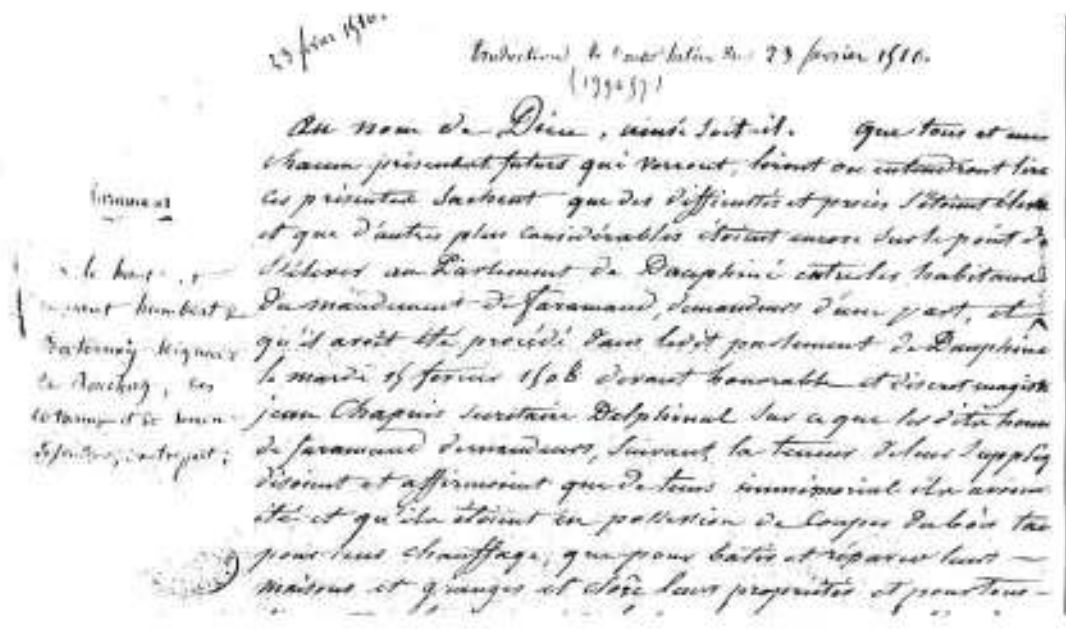 23 févier 1510.
Traduction de l'acte latin du 23 février 1510.
au nom de Dieu, ainsi soit-il. que tous et un
chacun présents et futurs qui verront, liront ou entendront lire
ces présentes sachent que des difficultés et procès s'étoient élevés
et que d'autres plus considérables étoient encore sur le point de
s'élever au Parlement de Dauphiné entre les habitants
du mandement de faramand, demandeurs d'une part, et
qu'il avoit été procédé dans ledit parlement de Dauphiné
le mardi 15 fevrier 1508 devant honorable et discret magist
jean Chapuis secretaire Delphinal sur ce que les dits homm
de faramand demandeurs, suivant la teneur de leur suppliq
disoient et affirmoient que de tems immémorial ils avoient
été et qu'ils étoient en possession de couper du bois tan
pour leur chauffage, que pour batir et réparer leurs
maisons et granges et clore leurs propriétés et pour tous
faramans
humbert de
défendeurs, d'autre part;